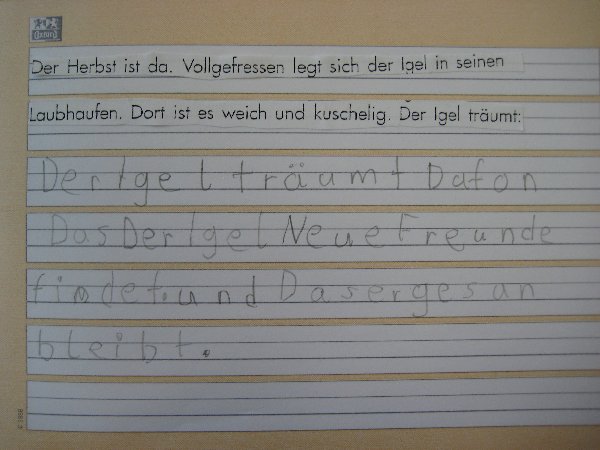 Der Herbst ist da. Vollgefressen legt sich der Igel in seinen
Laubhaufen. Dort ist es weich und kuschelig. Der Igel träumt:
Der Igel träumt Dafon
Das Der Igel Neue Freunde
findet. und Das er gesun
bleibt.